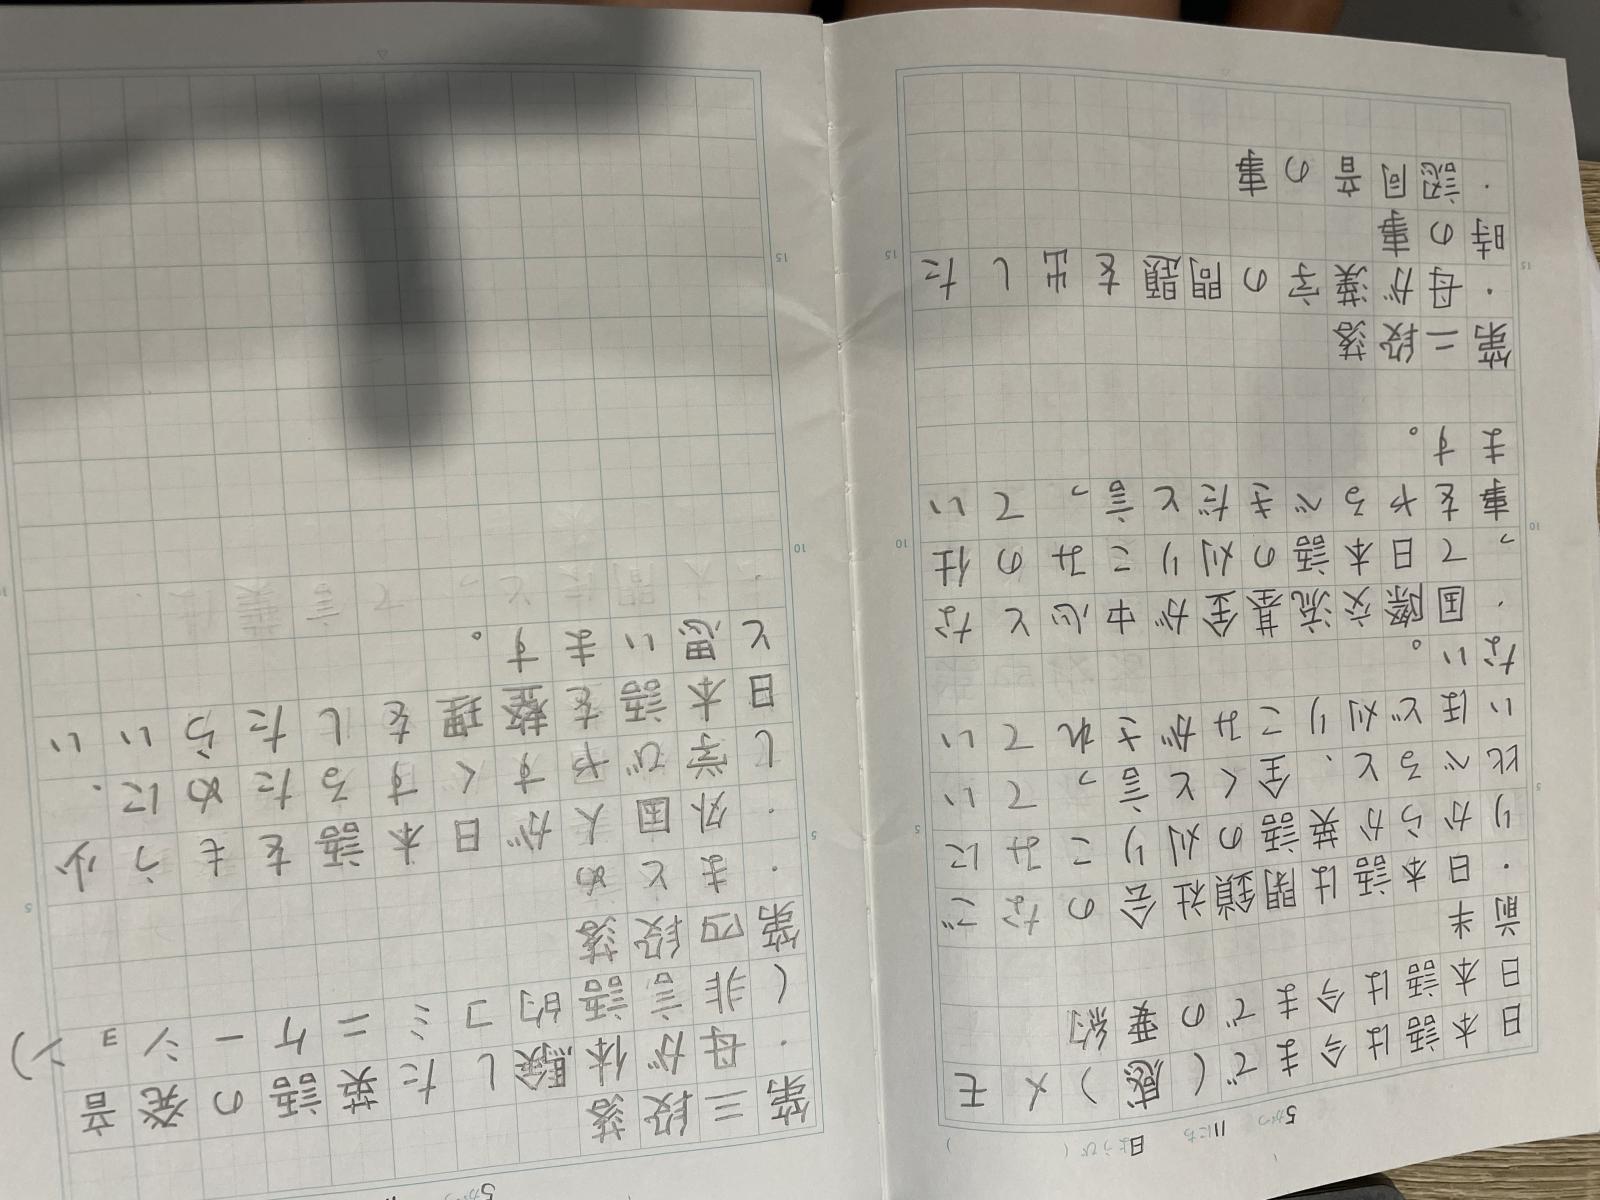 5がつ 11にち 日ようび( )
日本語は今まで(感)メモ
日本語は今までの要約
前半
・日本語は閉鎖社会のなご
りからか英語の刈りこみに
比べると、全くと言ってい
いほど刈りこみがされてい
ない。
・国際交流基金が中心とな
って日本語の刈りこみの仕
事をやるべきだと言ってい
ます。
第二段落
・母が漢字の問題を出した
時の事
・認同音の事
5がつ
第三段落
・母が体験した英語の発音
(非言語的コミニケーション)
第四段落
・まとめ
・外国人が日本語をもう少
し学びやすくするために、
日本語を整理をしたらいい
と思います。